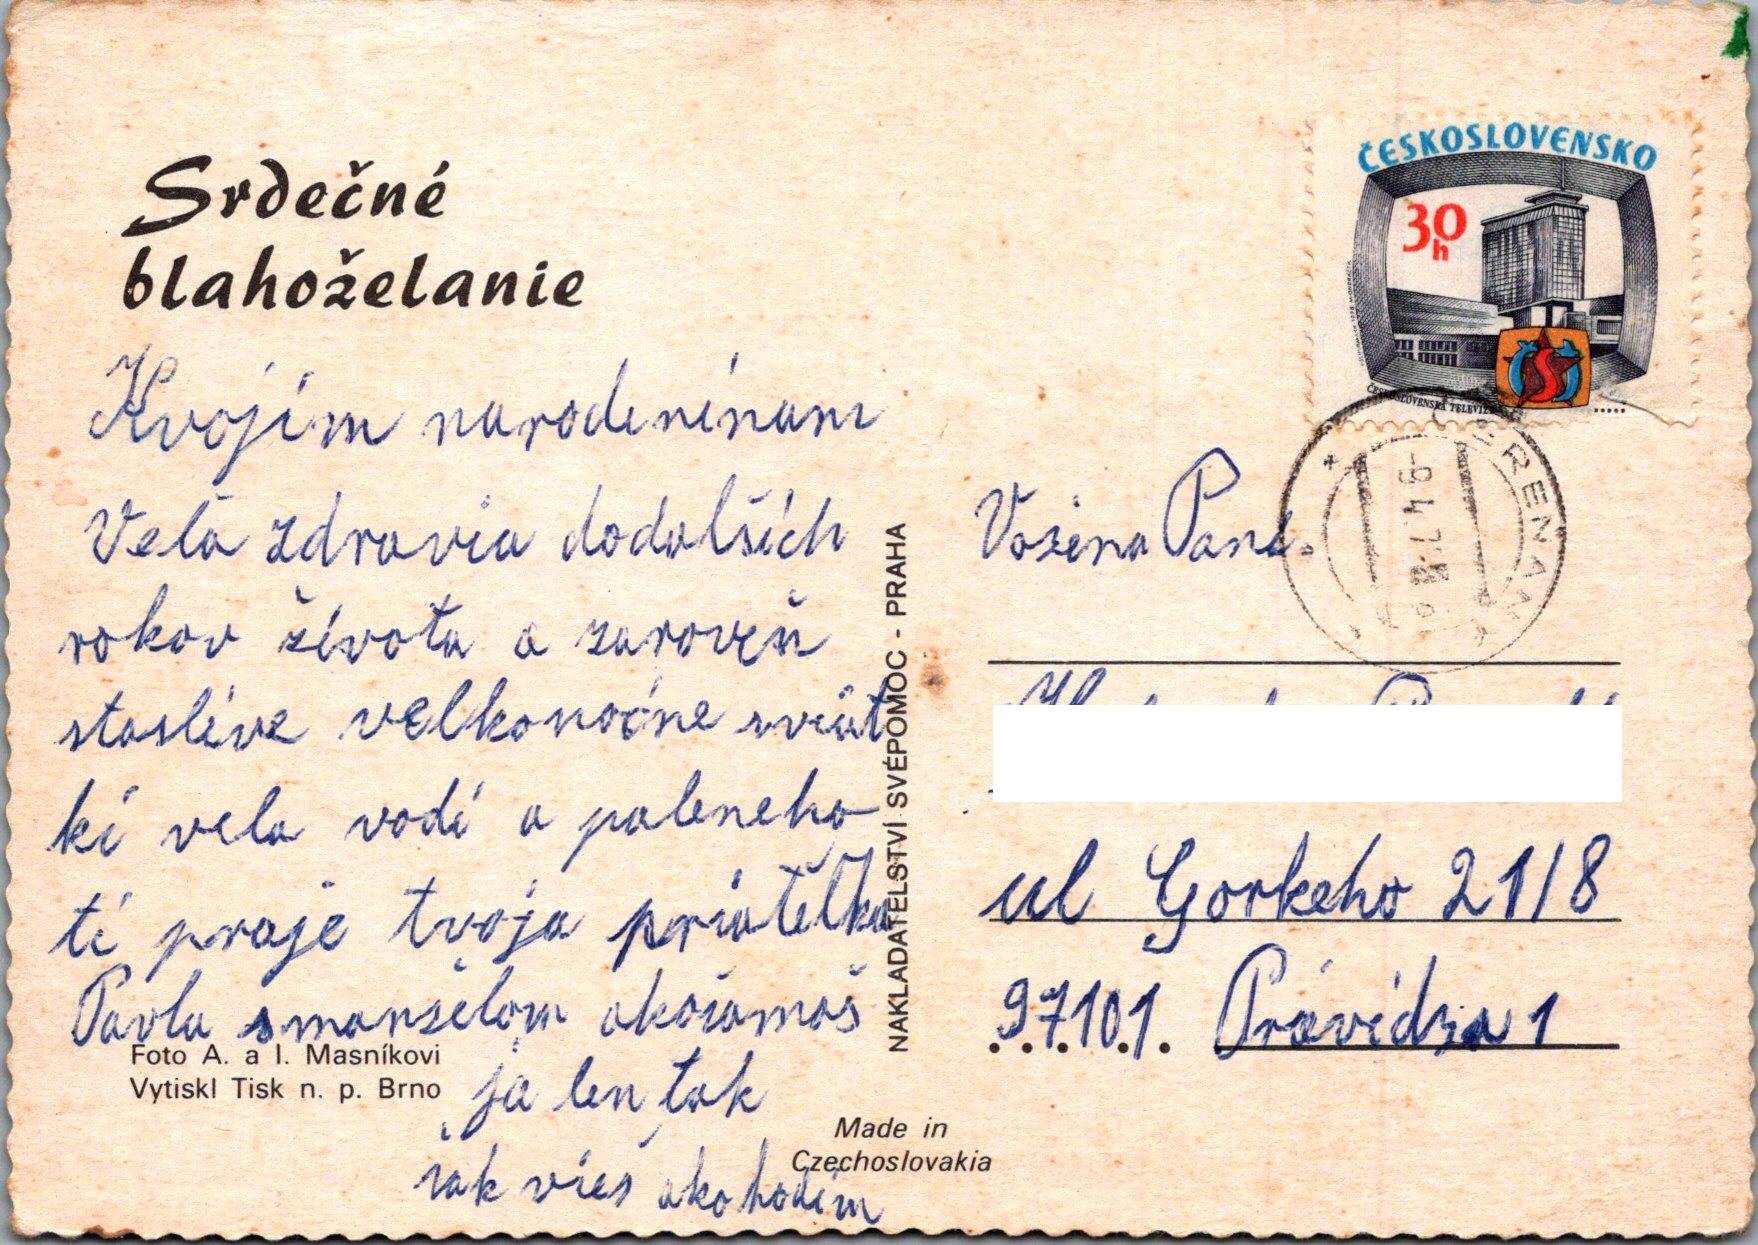 Srdečné
blahoželanie
Kvojím narodenínam
Vela zdravia dodalších
rokov života a zaroveň
staslive velkonočne sviat
ki vela vodi a paleneho
ti praje tvoja priatelka
Pavla smanželom akosamaš
ja len tak
vies ako hodim
Foto A. a I. Masníkovi
Vytiskl Tisk n. p. Brno
Made in
Czechoslovakia
NAKLADATELSTVÍ SVÉPOMOC - PRAHA
ČESKOSLOVENSKO
30
h
ČESKOSLOVENSKÁ TELEVIZE
Vožena Pani.
ul Gorkeho 21/8
97101. Prievidza 1